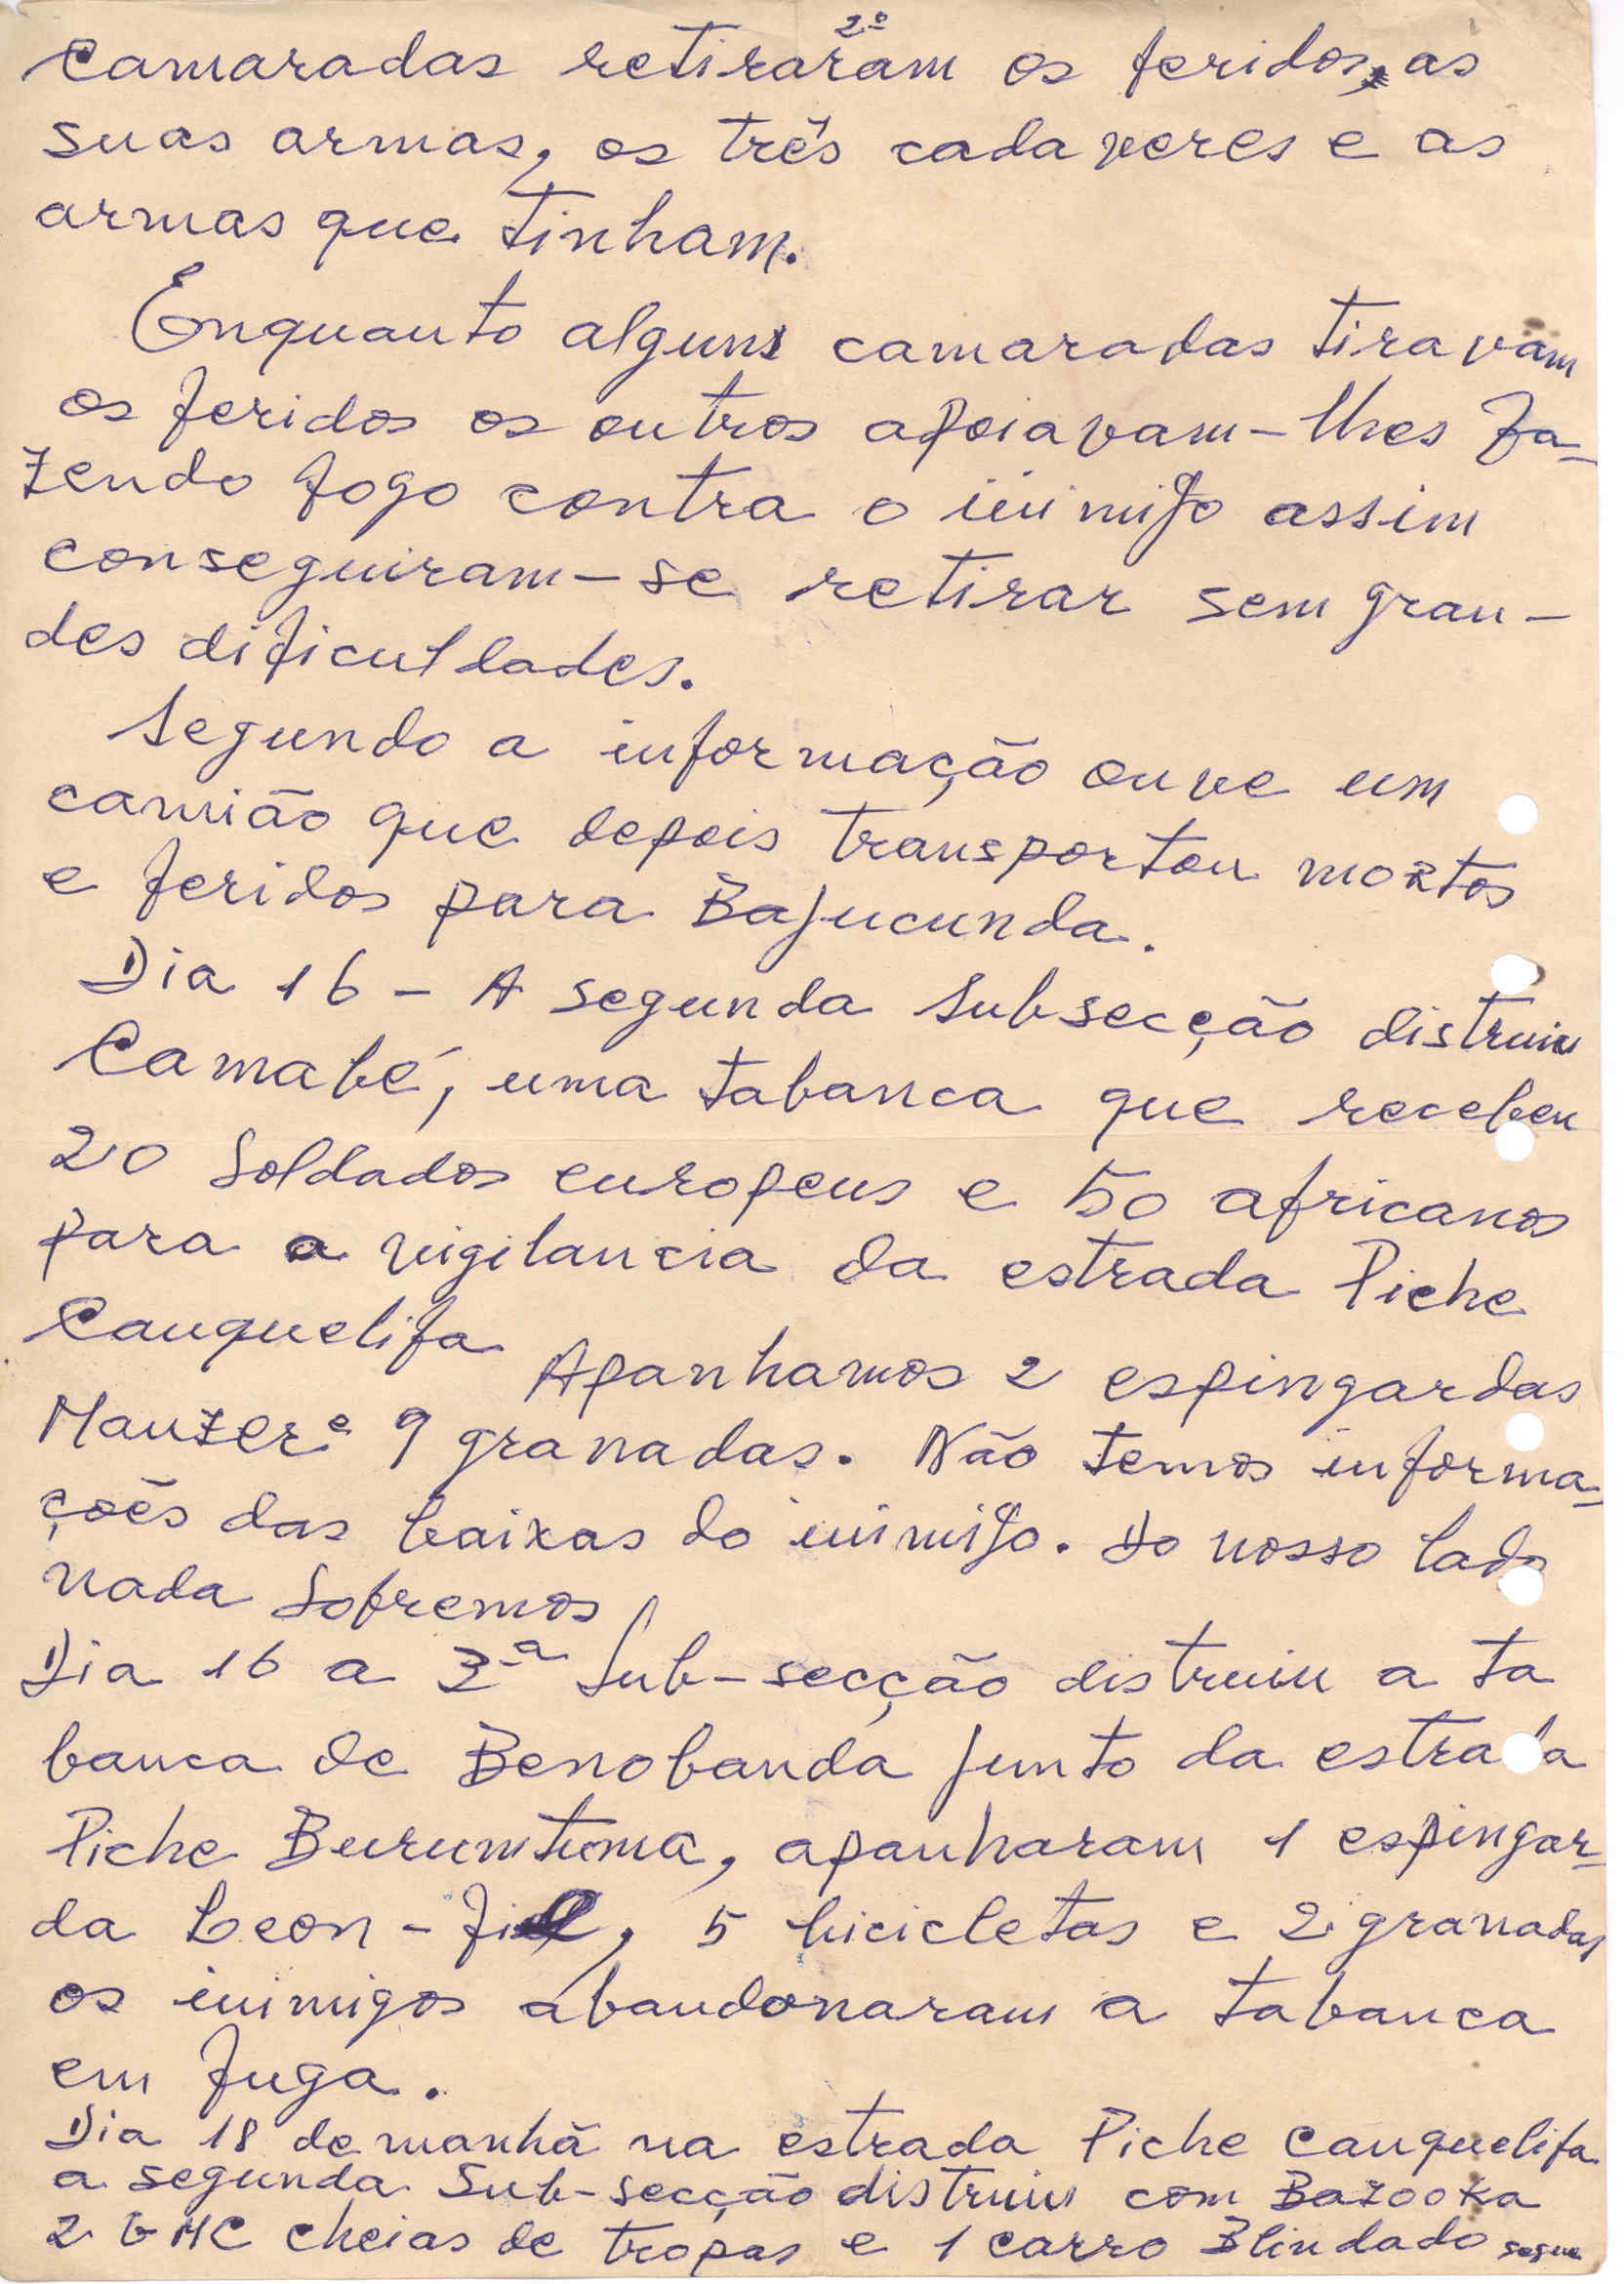 2º
Camaradas retiraram os feridos, as
suas armas, os três cadaveres e as
armas que tinham.
Enquanto alguns camaradas tiravam
os feridos os outros apoiavam-lhes fa-
zendo fogo contra o inimigo assim
conseguiram-se retirar sem gran-
des dificuldades.
Segundo a informação ouve um
camião que depois transportou mortos
e feridos para Bajucunda.
Dia 16 - A segunda Subsecção distruiu
Camabé, uma tabanca que recebeu
20 Soldados europeus e 50 africanos
para a vigilancia da estrada Piche
Canquelifa Apanhamos 2 espingardas
Mauzer e 9 granadas. Não temos informa-
ções das baixas do inimigo. Do nosso lado
nada Sofremos
Dia 16 a 3ª Sub-secção distruiu a ta
banca de Benobanda junto da estrada
Piche Buruntuma, apanharam 1 espingar-
da Leon-, 5 bicicletas e 2 granadas
os inimigos abandonaram a tabanca
em fuga.
Dia 18 de manhã na estrada Piche Canquelifa
a segunda Sub-secção distruiu com Bazooka
2 GMC cheias de tropas e 1 carro Blindado segue